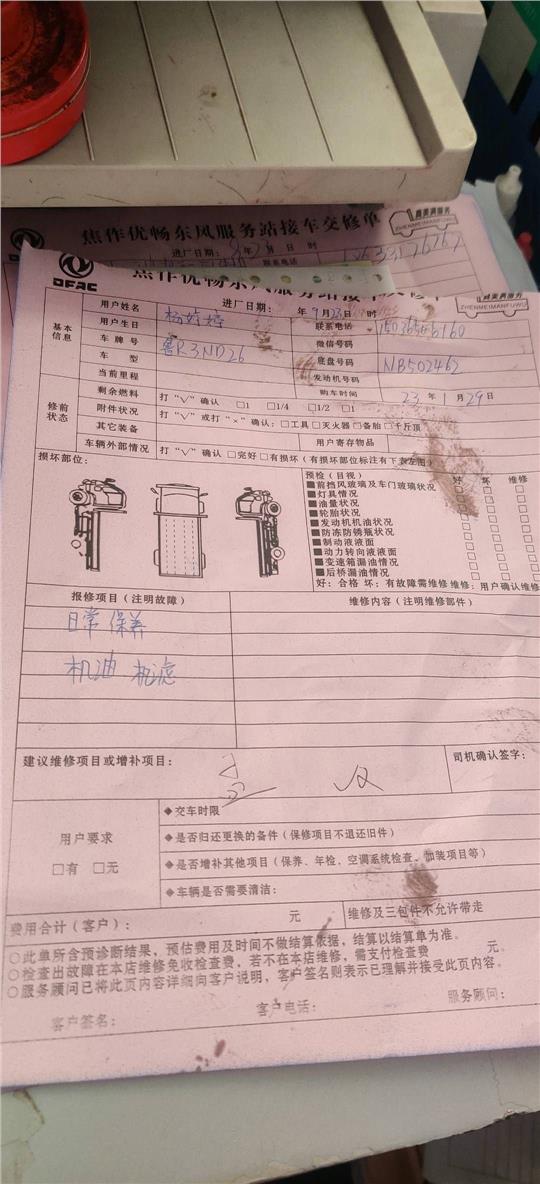 焦作优畅东风服务站接车交修单
真美满服务
ZHENMEIMANFUWU
进厂日期: 年 月 日 时
联系电话
DFAC
焦作优畅东风服务站接车交修单
真美满服务
ZHENMEIMANFUWU
进厂日期: 年 9月23日 时
基本信息
用户姓名 杨婷婷 联系电话
用户生日 微信号码
车牌号 豫R3ND26 底盘号码 NB502462
车型 发动机号码
当前里程 购车时间 23年1月29日
修前状态
剩余燃料 打“√”确认 □1 □1/4 □1/2 □1
附件状况 打“√”或打“×”确认: □工具 □灭火器 □备胎 □千斤顶
其它装备 用户寄存物品
车辆外部情况 打“√”确认 □完好 □有损坏 (有损坏部位标注有下表左图)
损坏部位:
预检(目视) 好 坏 维修
■前挡风玻璃及车门玻璃状况 □ □ □
■灯具情况 □ □ □
■油量状况 □ □ □
■轮胎状况 □ □ □
■发动机机油状况 □ □ □
■防冻防锈瓶状况 □ □ □
■制动液液面 □ □ □
■动力转向液液面 □ □ □
■变速箱漏油情况 □ □ □
■后桥漏油情况 □ □ □
好: 合格 坏: 有故障需维修 维修: 用户确认维修
报修项目(注明故障) 维修内容(注明维修部件)
日常保养
机油 机滤
建议维修项目或增补项目: 司机确认签字:
用户要求
□有 □无
◆交车时限
◆是否归还更换的备件(保修项目不退还旧件)
◆是否增补其他项目(保养、年检、空调系统检查、加装项目等)
◆车辆是否需要清洁:
费用合计(客户): 元 维修及三包件不允许带走
○此单所含预诊断结果,预估费用及时间不做结算依据,结算以结算单为准。
○检查出故障在本店维修免收检查费,若不在本店维修,需支付检查费 元。
○服务顾问已将此页内容详细向客户说明,客户签名则表示已理解并接受此页内容。
客户签名: 客户电话: 服务顾问: